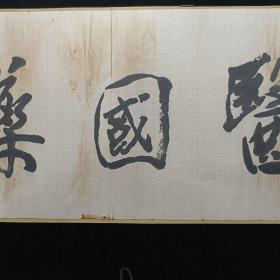 醫國藥